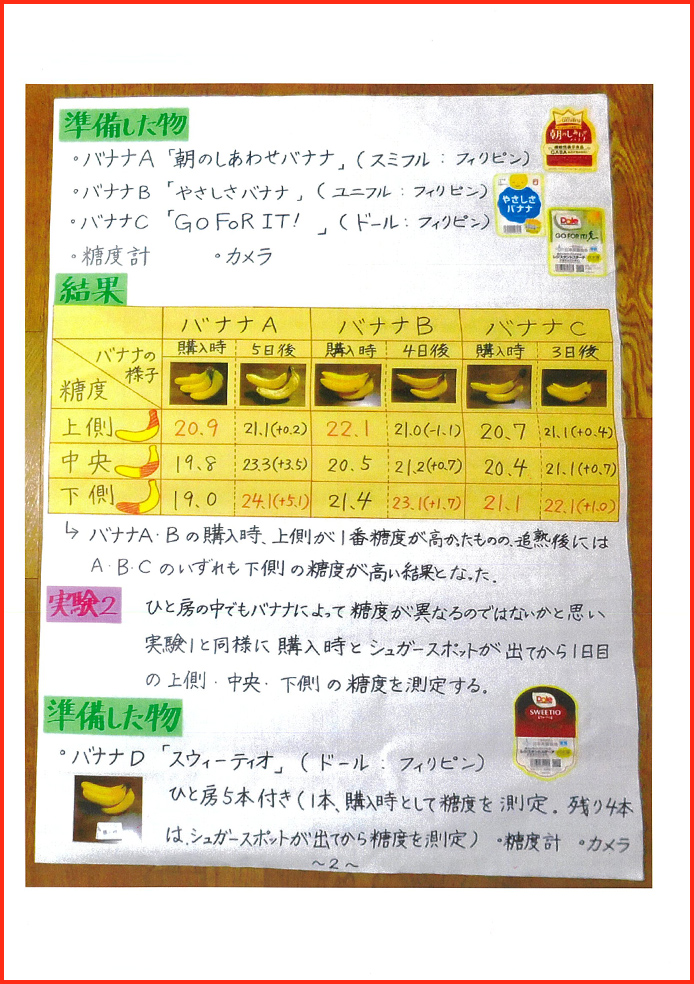 準備した物
・バナナA「朝のしあわせバナナ」(スミフル:フィリピン)
・バナナB「やさしさバナナ」(ユニフル:フィリピン)
・バナナC「GO FoR IT!」(ドール:フィリピン)
・糖度計 ・カメラ
朝のしあわせ
GABA
やさしさ
バナナ
Dole
GO FOR IT!
結果
バナナA バナナB バナナC
バナナの様子 購入時 5日後 購入時 4日後 購入時 3日後
糖度
上側 20.9 21.1(+0.2) 22.1 21.0(-1.1) 20.7 21.1(+0.4)
中央 19.8 23.3(+3.5) 20.5 21.2(+0.7) 20.4 21.1(+0.7)
下側 19.0 24.1(+5.1) 21.4 23.1(+1.7) 21.1 22.1(+1.0)
↳ バナナA・Bの購入時、上側が1番糖度が高かったものの、追熟後には
A・B・Cのいずれも下側の糖度が高い結果となった。
実験2 ひと房の中でもバナナによって糖度が異なるのではないかと思い
実験1と同様に購入時とシュガースポットが出てから1日目
の上側・中央・下側の糖度を測定する。
準備した物
Dole
SWEETIO
・バナナD「スウィーティオ」(ドール:フィリピン)
ひと房5本付き(1本、購入時として糖度を測定。残り4本
は、シュガースポットが出てから糖度を測定) ・糖度計 ・カメラ
～2～